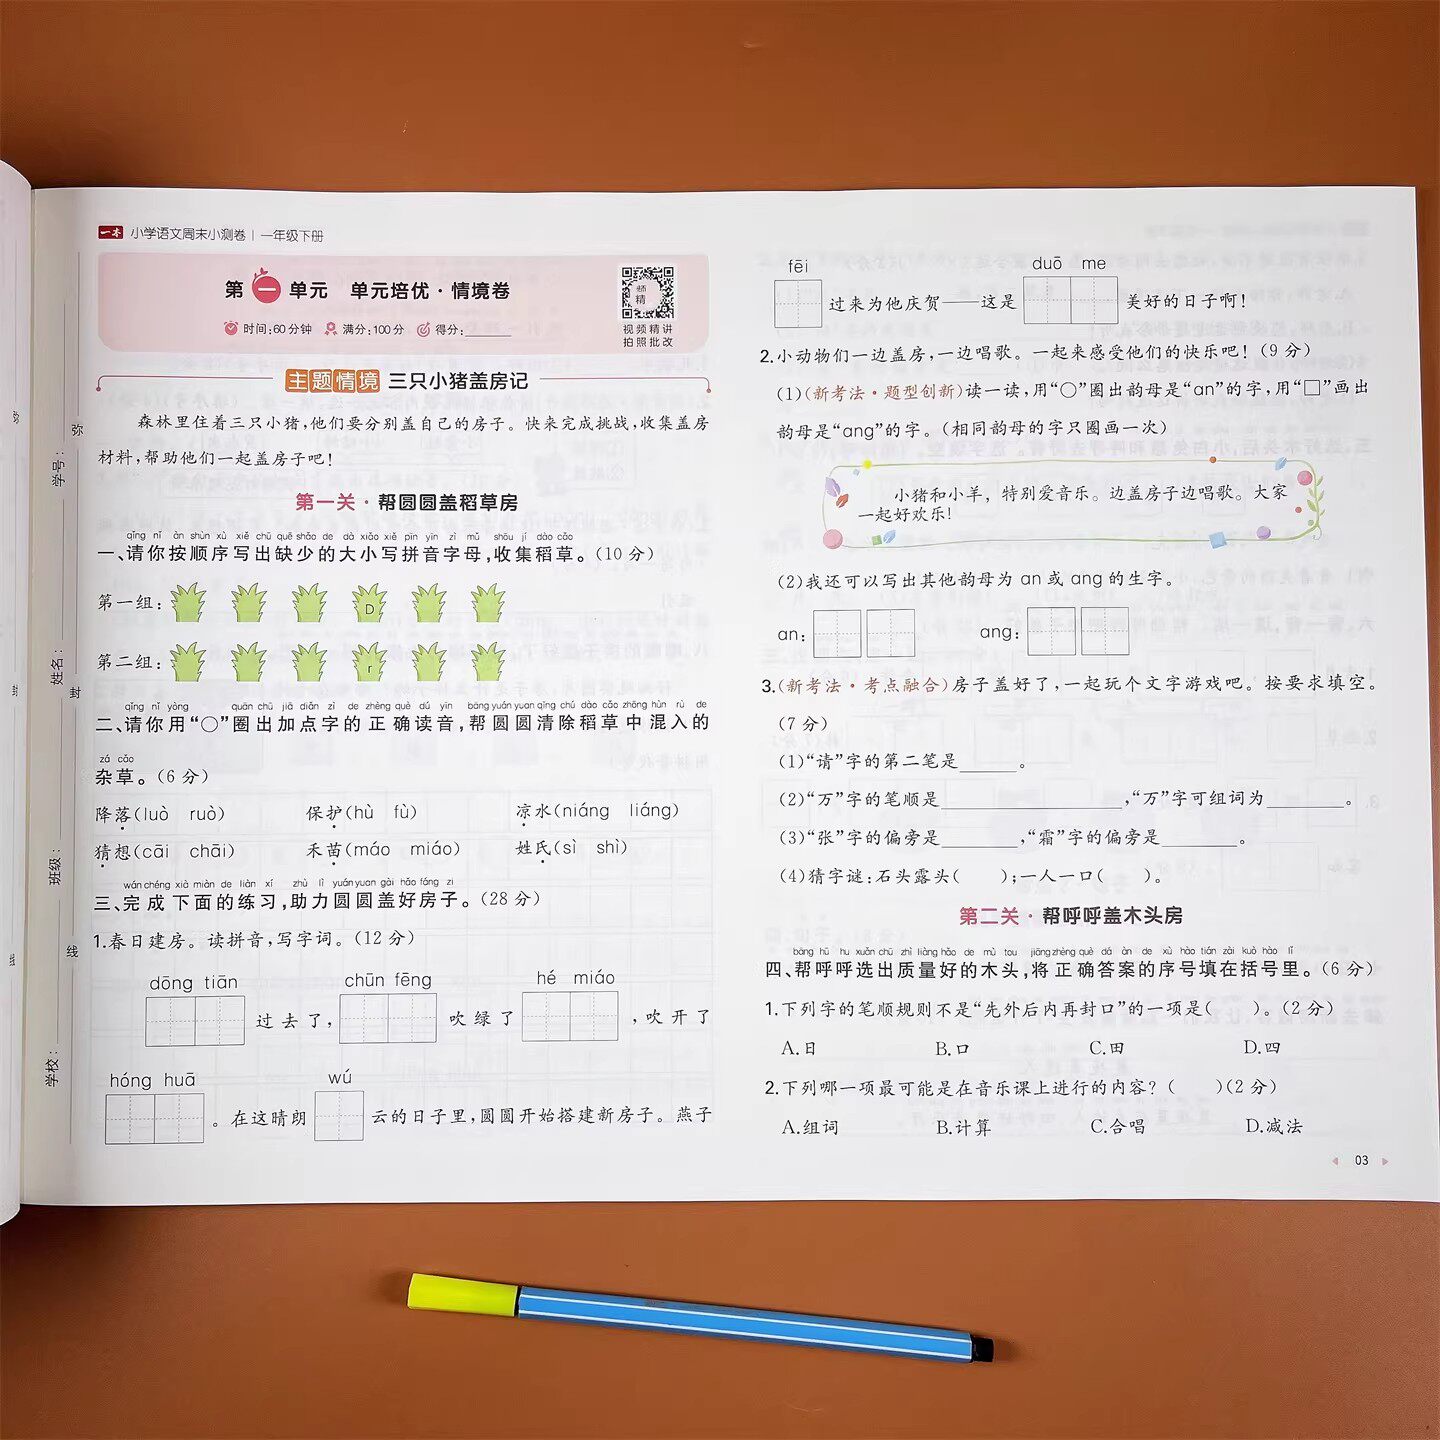 一本 小学语文周末小测卷 | 一年级下册
第一单元 单元培优·情境卷
时间:60分钟 满分:100分 得分:______
视频精讲
拍照批改
主题情境 三只小猪盖房记
森林里住着三只小猪,他们要分别盖自己的房子。快来完成挑战,收集盖房
材料,帮助他们一起盖房子吧!
第一关·帮圆圆盖稻草房
qǐng nǐ àn shùn xù xiě chū quē shǎo de dà xiǎo xiě pīn yīn zì mǔ shōu jí dào cǎo
一、请你按顺序写出缺少的大小写拼音字母,收集稻草。(10分)
第一组: D
第二组: r
qǐng nǐ yòng quān chū jiā diǎn zì de zhèng què dú yīn bāng yuán yuan qīng chú dào cǎo zhōng hùn rù de
二、请你用“○”圈出加点字的正确读音,帮圆圆清除稻草中混入的
zá cǎo
杂草。(6分)
降落(luò ruò) 保护(hù fù) 凉水(niáng liáng)
猜想(cāi chāi) 禾苗(máo miáo) 姓氏(sì shì)
wán chéng xià miàn de liàn xí zhù lì yuán yuan gài hǎo fáng zi
三、完成下面的练习,助力圆圆盖好房子。(28分)
1.春日建房。读拼音,写字词。(12分)
dōng tiān chūn fēng hé miáo
过去了, 吹绿了 ,吹开了
hóng huā wú
。在这晴朗 云的日子里,圆圆开始搭建新房子。燕子
学校: 班级: 姓名: 学号:
弥 封 线
弥 封 线
fēi duō me
过来为他庆贺——这是 美好的日子啊!
2.小动物们一边盖房,一边唱歌。一起来感受他们的快乐吧!(9分)
(1)(新考法·题型创新)读一读,用“○”圈出韵母是“an”的字,用“□”画出
韵母是“ang”的字。(相同韵母的字只圈画一次)
小猪和小羊,特别爱音乐。边盖房子边唱歌。大家
一起好欢乐!
(2)我还可以写出其他韵母为 an 或 ang 的生字。
an: ang:
3.(新考法·考点融合)房子盖好了,一起玩个文字游戏吧。按要求填空。
(7分)
(1)“请”字的第二笔是______。
(2)“万”字的笔顺是__________________,“万”字可组词为________。
(3)“张”字的偏旁是________,“霜”字的偏旁是________。
(4)猜字谜:石头露头( );一人一口( )。
第二关·帮呼呼盖木头房
bāng hū hu xuǎn chū zhì liàng hǎo de mù tou jiāng zhèng què dá àn de xù hào tián zài kuò hào lǐ
四、帮呼呼选出质量好的木头,将正确答案的序号填在括号里。(6分)
1.下列字的笔顺规则不是“先外后内再封口”的一项是( )。(2分)
A.日 B.口 C.田 D.四
2.下列哪一项最可能是在音乐课上进行的内容?( )(2分)
A.组词 B.计算 C.合唱 D.减法
03